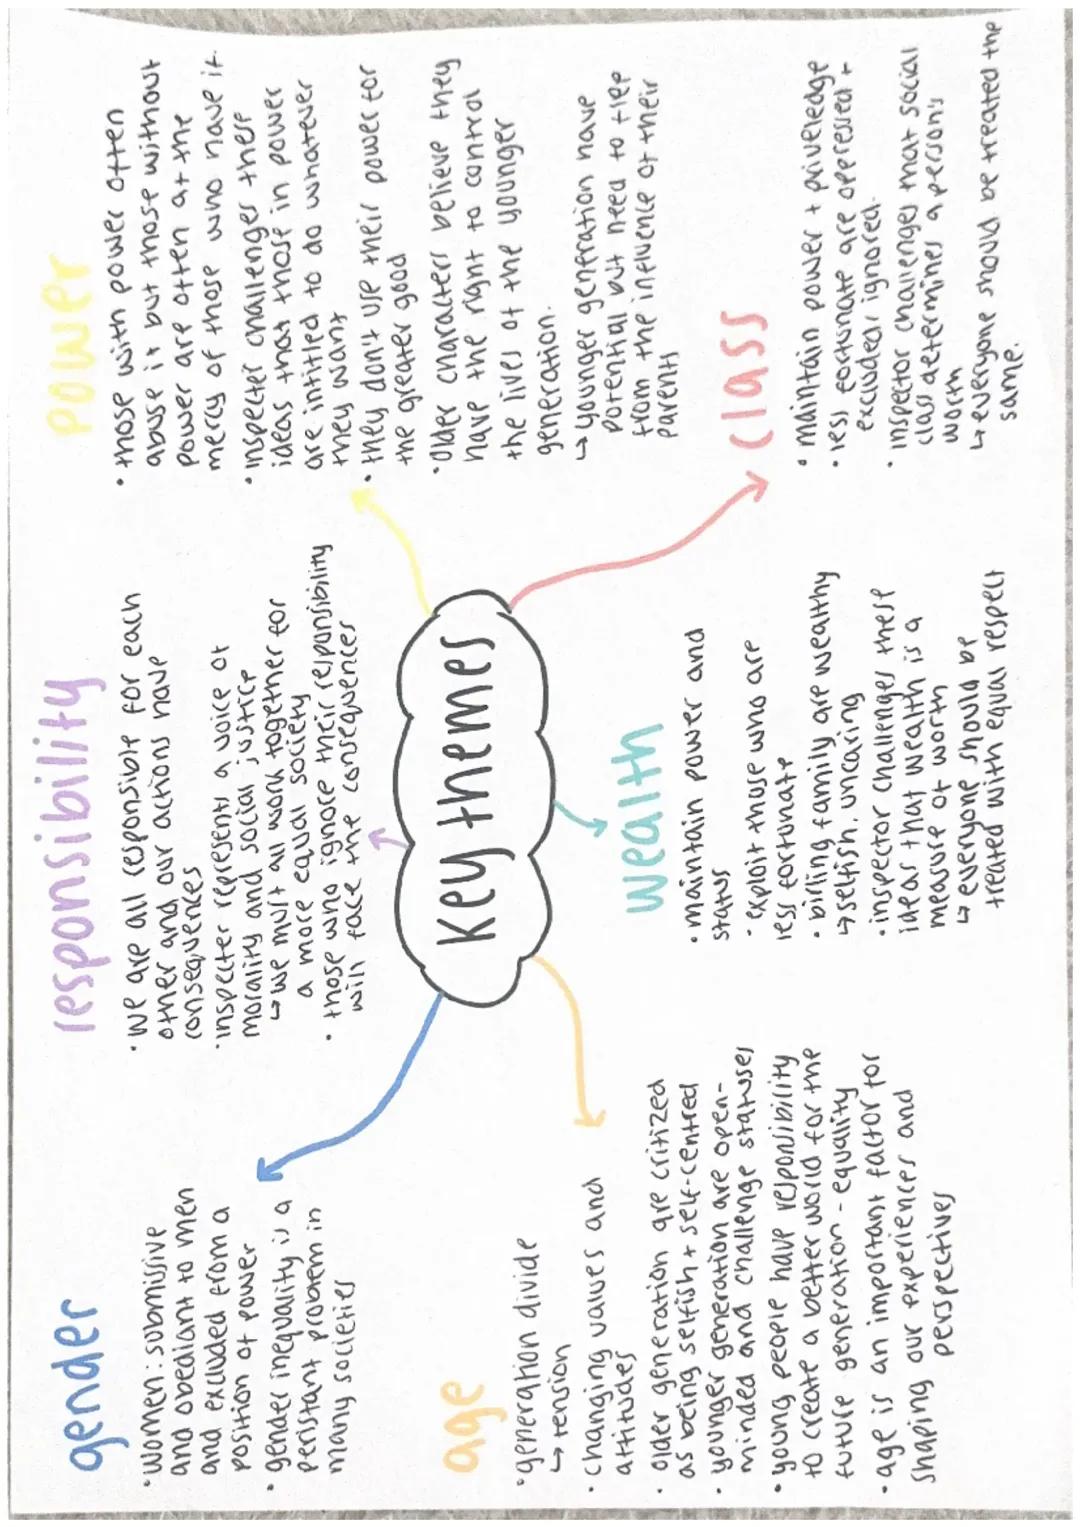 gender
• women: submissive
and obediant to men
and excluded from a
position of power
• gender inequality is a
peristant problem in
many societies
responsibility
• we are all responsible for each
other and our actions have
consequences
• inspecter represents a voice of
morality and social justice
↳ we must all work together for
a more equal society
• those who ignore their responsibility
will face the consequences
power
• those with power often
abuse it but those without
power are often at the
mercy of those who have it
• inspecter challenges these
ideas that those in power
are intitled to do whatever
they want
• they don't use their power for
the greater good
• Older characters believe they
have the right to control
the lives of the younger
generation.
↳ younger generation have
potential but need to step
from the influence of their
parents
Key themes
age
• generation divide
↳ tension
• changing values and
attitudes
• older generation are critized
as being selfish + self-centred
• younger generation are open-
minded and challenge statuses
• young people have responibility
to create a better world for the
future generation - equality
• age is an important factor for
shaping our experiences and
perspectives
wealth
• maintain power and
status
• exploit those who are
less fortunate
• birling family are wealthy
↳ selfish, uncaring
• inspector challenges these
ideas that wealth is a
measure of worth
↳ everyone should be
treated with equal respect
class
• maintain power + priveledge
• less fortunate are oppressed +
excluded, ignored.
• inspector challenges that social
class determines a person's
worth
↳ everyone should be treated the
same.